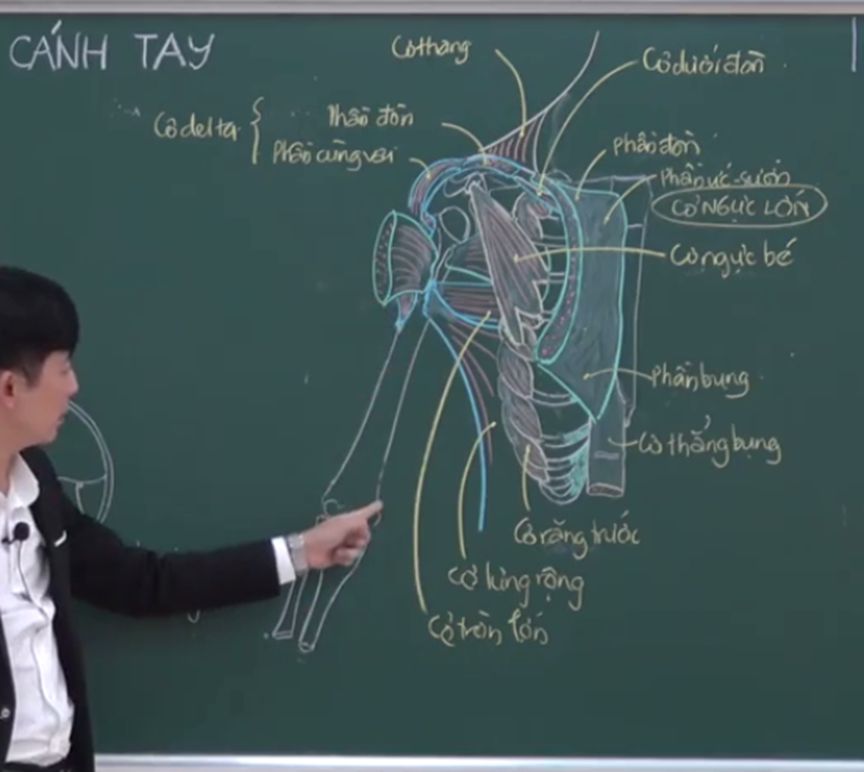 CÁNH TAY
Cơ thang
Cơ dưới đòn
Cơ delta {
Phần đòn
Phần cùng vai
Phần đòn
Phần ức-sườn
CƠ NGỰC LỚN
Cơ ngực bé
Phần bụng
Cơ thẳng bụng
Cơ răng trước
Cơ lưng rộng
Cơ tròn lớn